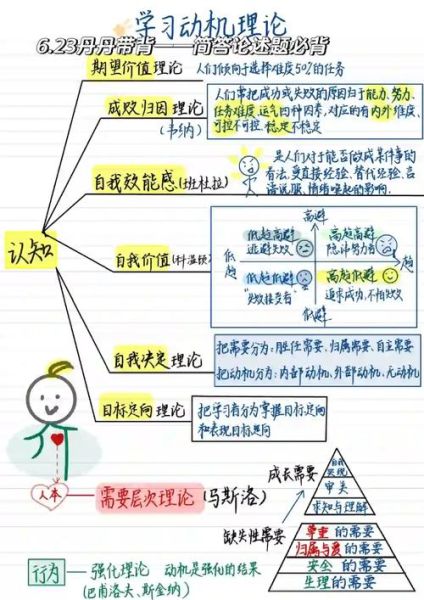 学习动机理论
6.23丹丹带背——简答论述题必背
期望价值理论 人们倾向于选择难度50%的任务
成败归因理论
(韦纳)
人们常把成功或失败的原因归于能力、努力、
任务难度、运气四种因素,对应的有内外维度、
可控不可控、稳定不稳定
自我效能感(班杜拉)
是人们对于能否做成某件事的
看法,受直接经验、替代经验、言
语说服、情绪唤起的影响.
认知
自我价值(科温顿)
高避
低趋高避
逃避失败
高趋高避
隐讳努力者
低趋
高趋
低趋低避
"失败接受者"
高趋低避
追求成功,不怕失败
低避
自我决定理论
把需要分为:胜任需要、归属需要、自主需要
把动机分为:内部动机、外部动机、无动机
目标定向理论
把学习者分为掌握目标定向
和表现目标定向
人本
需要层次理论(马斯洛)
成长需要
自我
实现
审美
求知与理解
缺失性需要
尊重的需要
归属与爱的需要
安全的需要
生理的需要
行为—强化理论 动机是强化的结果
(巴甫洛夫、斯金纳)